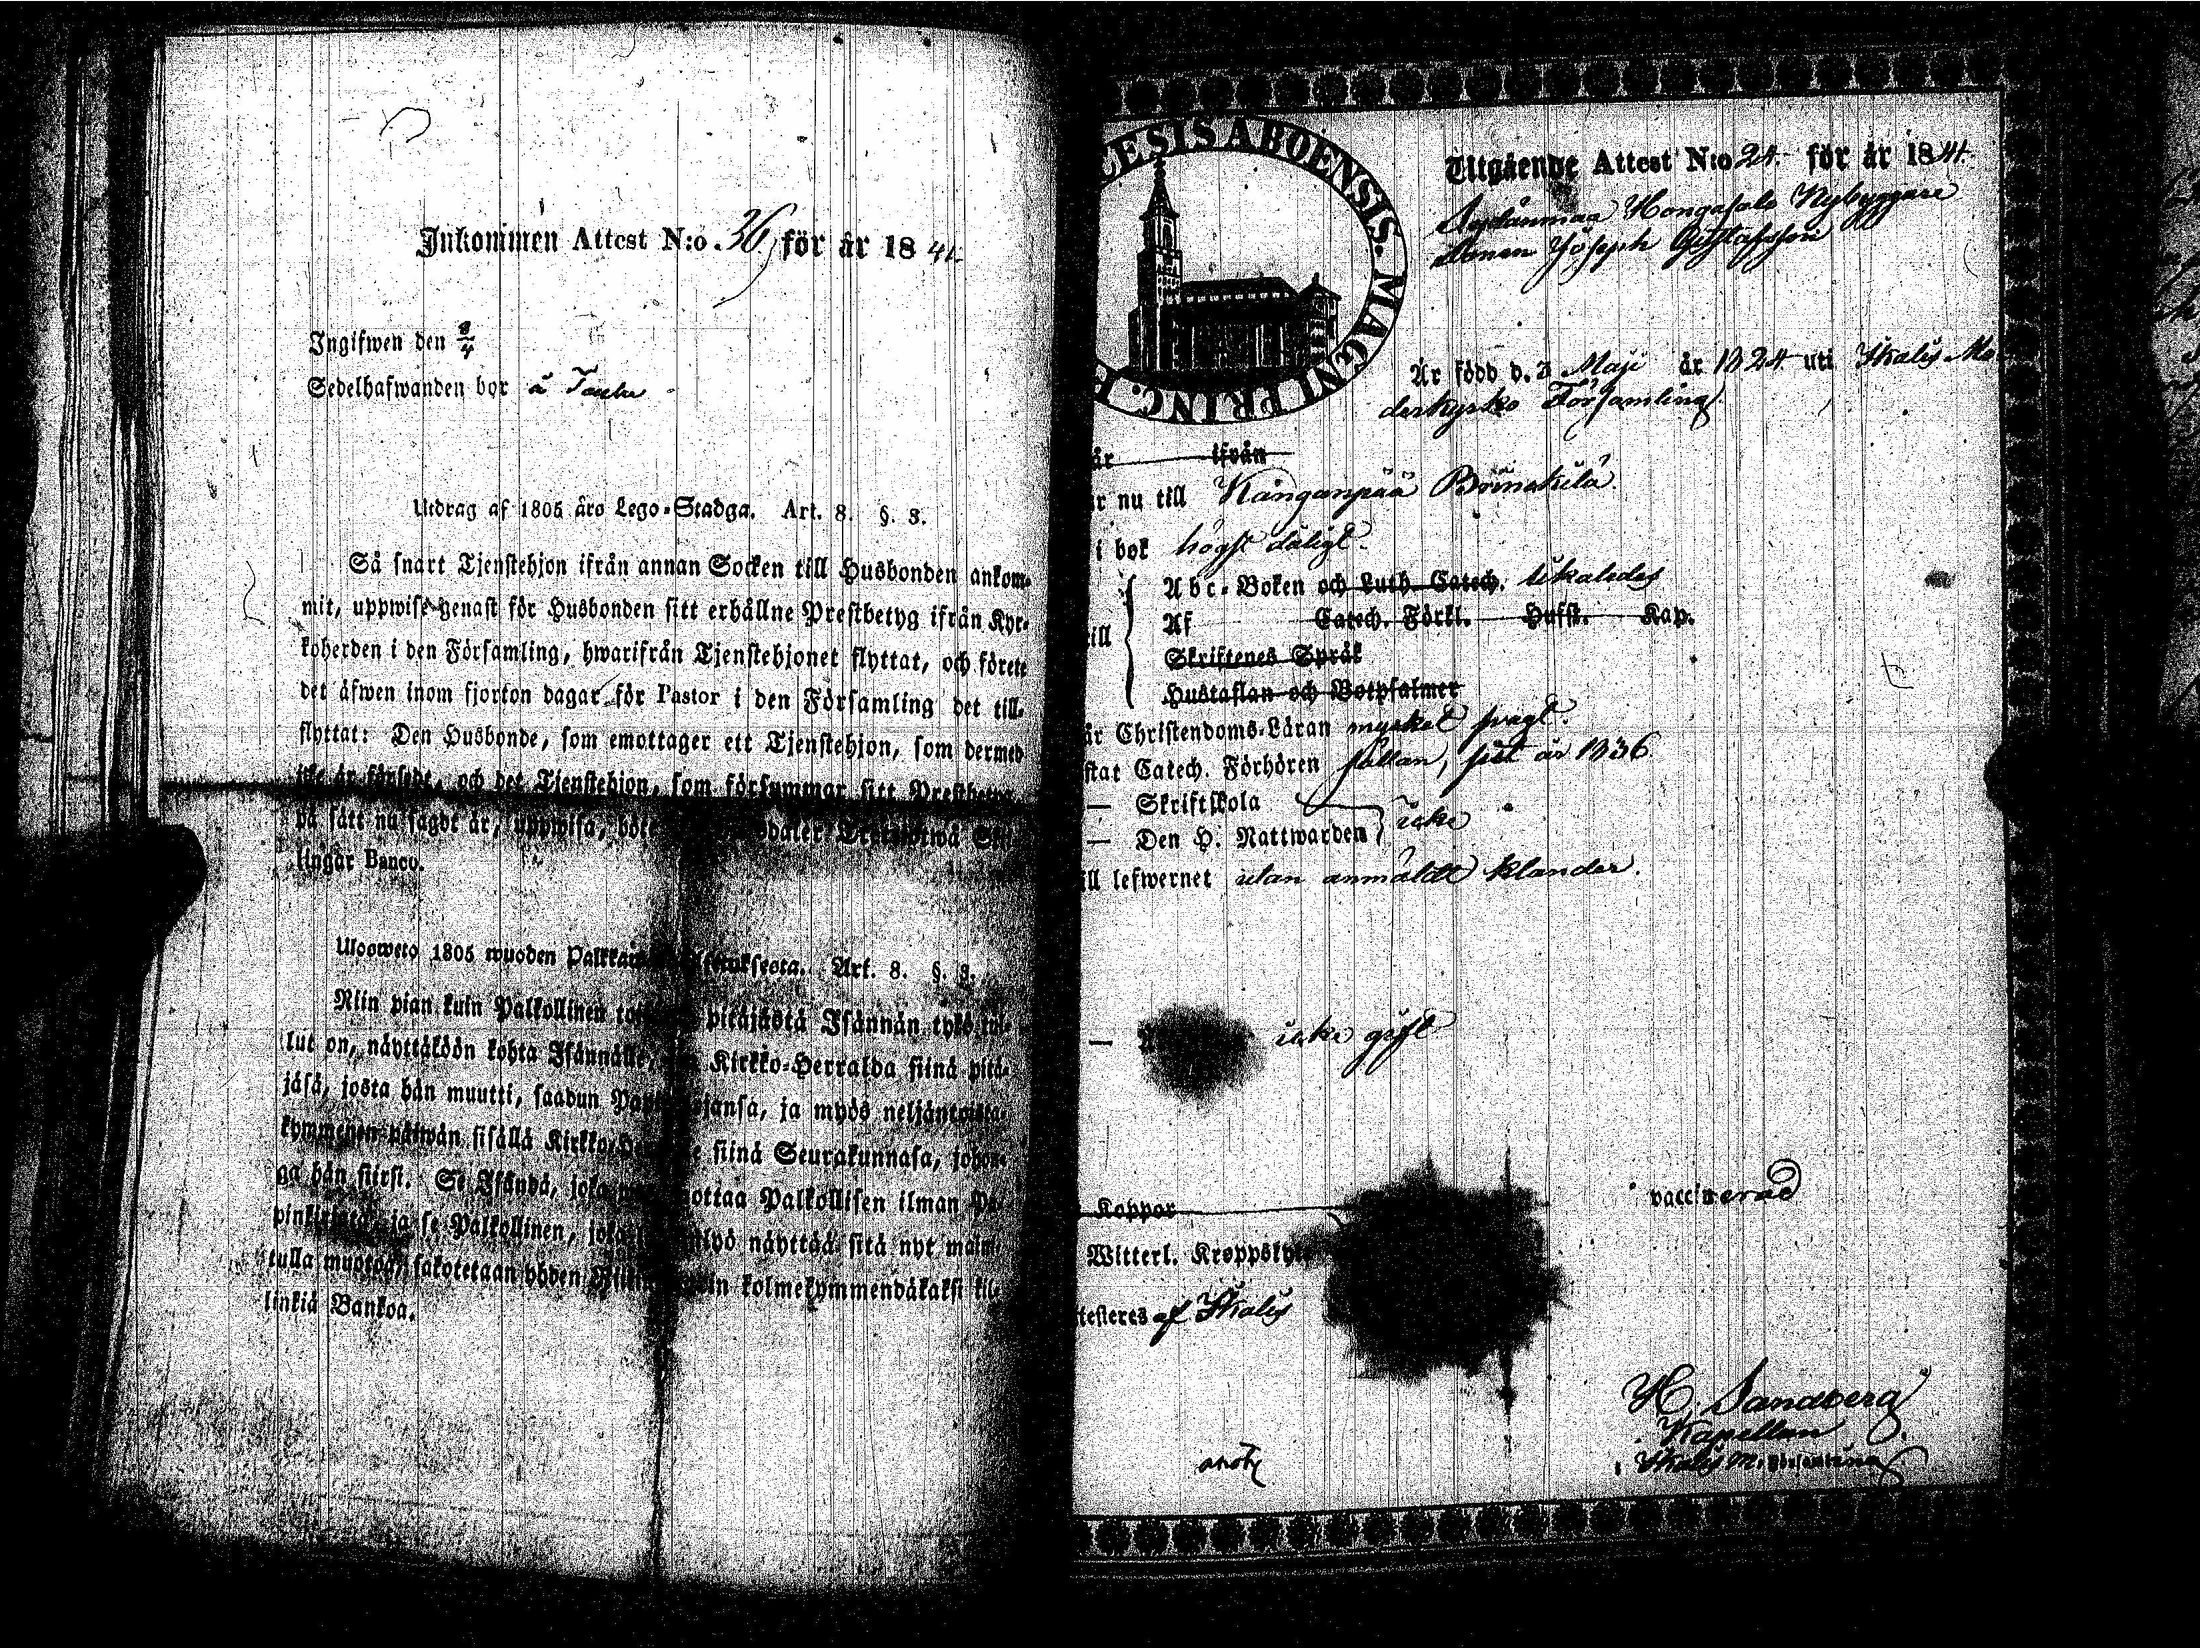 Inkommen Attest N:o. 36 för år 1841.
Ingifwen den 8/4
Sedelhafwanden bor å
Utdrag af 1805 års Lego-Stadga. Art. 8. §. 3.
Så snart Tjenstehjon ifrån annan Socken till Husbonden ankom-
mit, uppwise genast för Husbonden sitt erhållne Prestbetyg ifrån Kyr-
koherden i den Församling, hwarifrån Tjenstehjonet flyttat, och förete
det äfwen inom fjorton dagar för Pastor i den Församling det till-
flyttat: Den Husbonde, som emottager ett Tjenstehjon, som dermed
icke är försedt, och det Tjenstehjon, som försummar sitt Prestbetyg,
på sätt nu sagdt är, uppwisa, böte Tretiotwå Skil-
lingar Banco.
Ulosweto 1805 wuoden Art. 8. §. 3.
Niin pian kuin Palkollinen pitäjästä Isännän tykö tul-
lut on, näyttäköön kohta Isännälle, Kirkko-Herralda siinä pitä-
jäsä, josta hän muutti, saadun ja myös neljäntoista-
kymmenen päiwän sisällä siinä Seurakunnasa, johon-
ga hän siirsi. Se Isändä, joka ottaa Palkollisen ilman Pa-
pinkirjata, ja se Palkollinen, joka näyttää sitä nyt maini-
tulla muotoa, sakotetaan yhden kolmekymmendäkaksi kil-
linkiä Bankoa.
ESIS ABOENSIS. MAGNI PRINC. F
Utgående Attest N:o 24 för år 1841.
Sydänmaa Hongasalo Nybyggare
Sonen Joseph Gustafsson
Är född d. 3 Maji år 1824 uti Ikalis Mo
derkyrko Församling.
år ifrån
r nu till Kånganpää
i bok högst dåligt.
ill Abc-Boken och Luth. Catech. likaledes
Af Catech. Förkl. Hufst. Kap.
Skriftenes Språk
Hustaflan och Botpsalmer
är Christendoms-Läran mycket svagt.
stat Catech. Förhören sällan, sist år 1836
— Skriftskola
— Den H. Nattwarden } icke
ill lefwernet utan anmäldt klander.
— icke gift
Koppor vaccinerad
Witterl. Kroppslyte
testeres af Ikalis
H. Sandberg
Kapellan
Ikalis M.